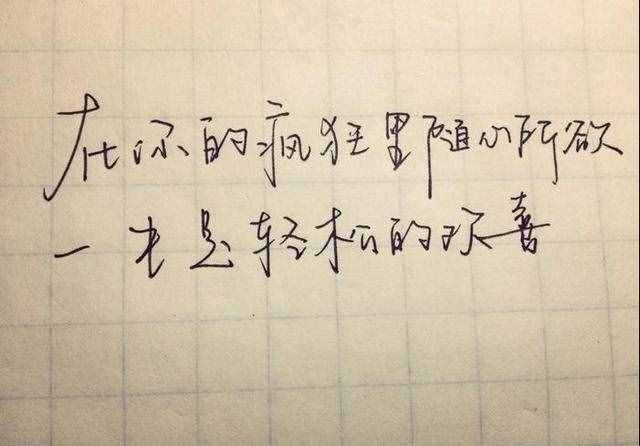 在你的疯狂里随心所欲
一才是轻松的欢喜